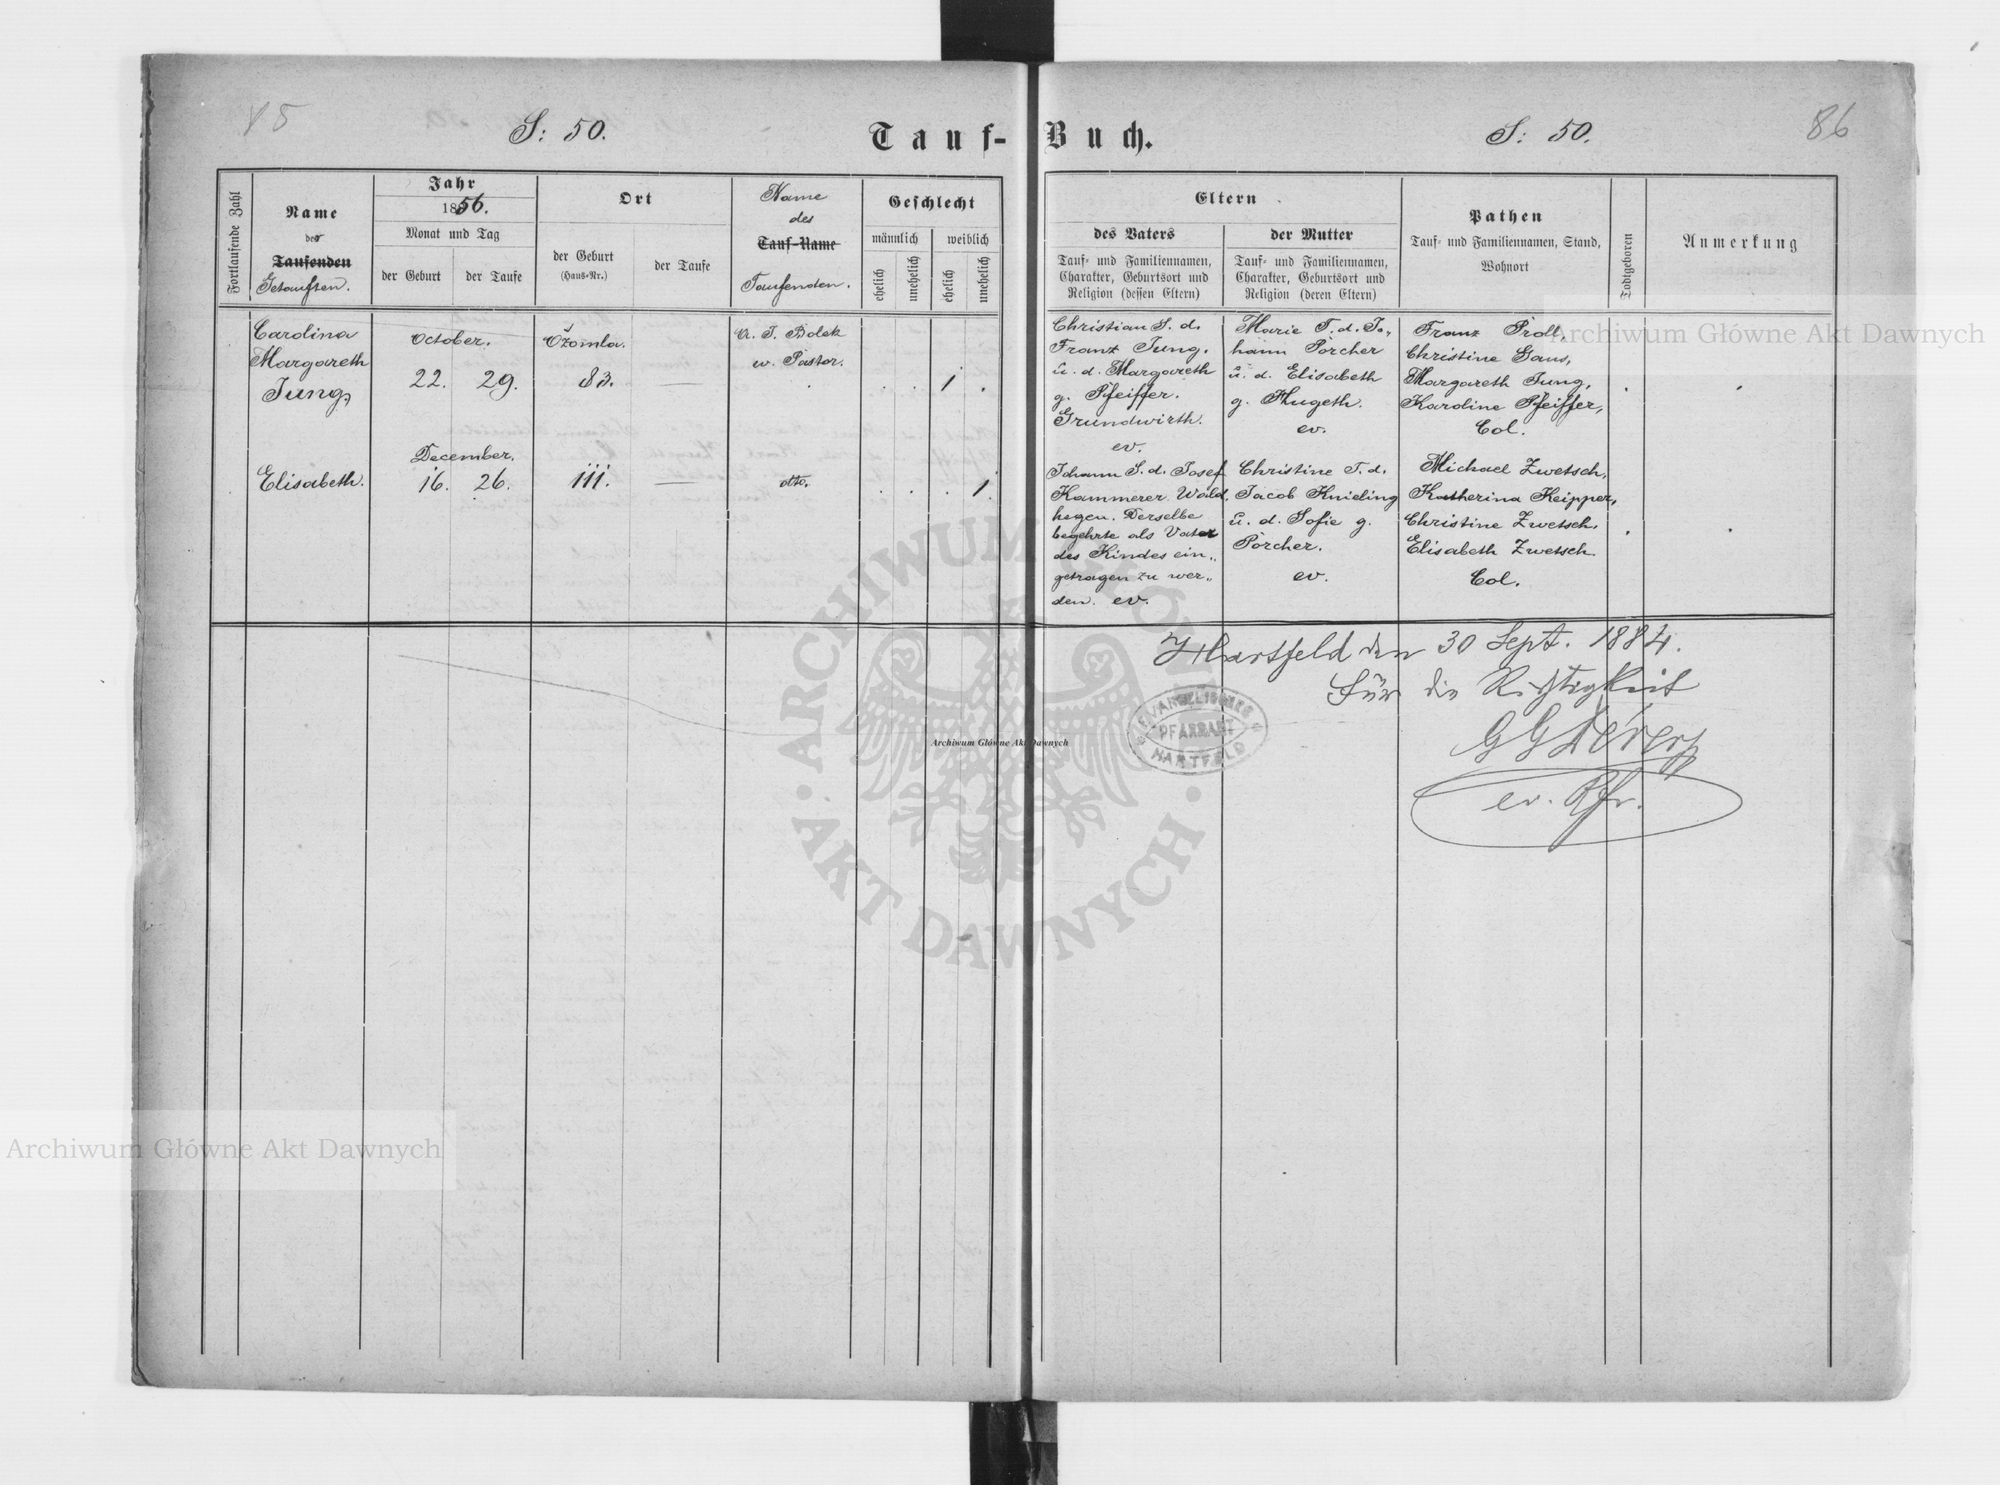 85
S: 50.
Tauf-
Buch.
S: 50.
86
Fortlaufende Zahl
Name
des
Taufenden
Getauften.
Jahr
1856.
Monat und Tag
der Geburt
der Taufe
Ort
der Geburt
(Haus-Nr.)
der Taufe
Name
des
Tauf-Name
Taufenden.
Geschlecht
männlich
weiblich
ehelich
unehelich
ehelich
unehelich
Eltern
des Vaters
Tauf- und Familiennamen,
Charakter, Geburtsort und
Religion (dessen Eltern)
der Mutter
Tauf- und Familiennamen,
Charakter, Geburtsort und
Religion (deren Eltern)
Pathen
Tauf- und Familiennamen, Stand,
Wohnort
Todtgeboren
Anmerkung
Carolina
Margareth
Jung,
October.
22. 29.
Ožomla.
83.
A. T. Bolek
ev. Pastor.
1
Christian S. d.
Franz Jung.
u. d. Margareth
g. Pfeiffer.
Grundwirth.
ev.
Marie T. d. Jo„
hann Porcher
u. d. Elisabeth
g. Hugeth.
ev.
Franz Proll,
Christine Gaus,
Margareth Jung,
Karoline Pfeiffer,
Col.
Elisabeth.
December.
16. 26.
111.
dto.
1
Johann S. d. Josef
Kammerer Wald„
hegen. Derselbe
begehrte als Vater
des Kindes ein„
getragen zu wer„
den. ev.
Christine T. d.
Jacob Knieling
u. d. Sofie g.
Porcher.
ev.
Michael Zwetsch,
Katherina Keipper,
Christine Zwetsch,
Elisabeth Zwetsch
Col.
Hartfeld den 30 Sept. 1884.
Für die Richtigkeit
ev. Pfr.
EVANGELISCHES
PFARRAMT
HARTFELD
Archiwum Główne Akt Dawnych
ARCHIWUM GŁÓWNE
AKT DAWNYCH
Archiwum Główne Akt Dawnych
Archiwum Główne Akt Dawnych